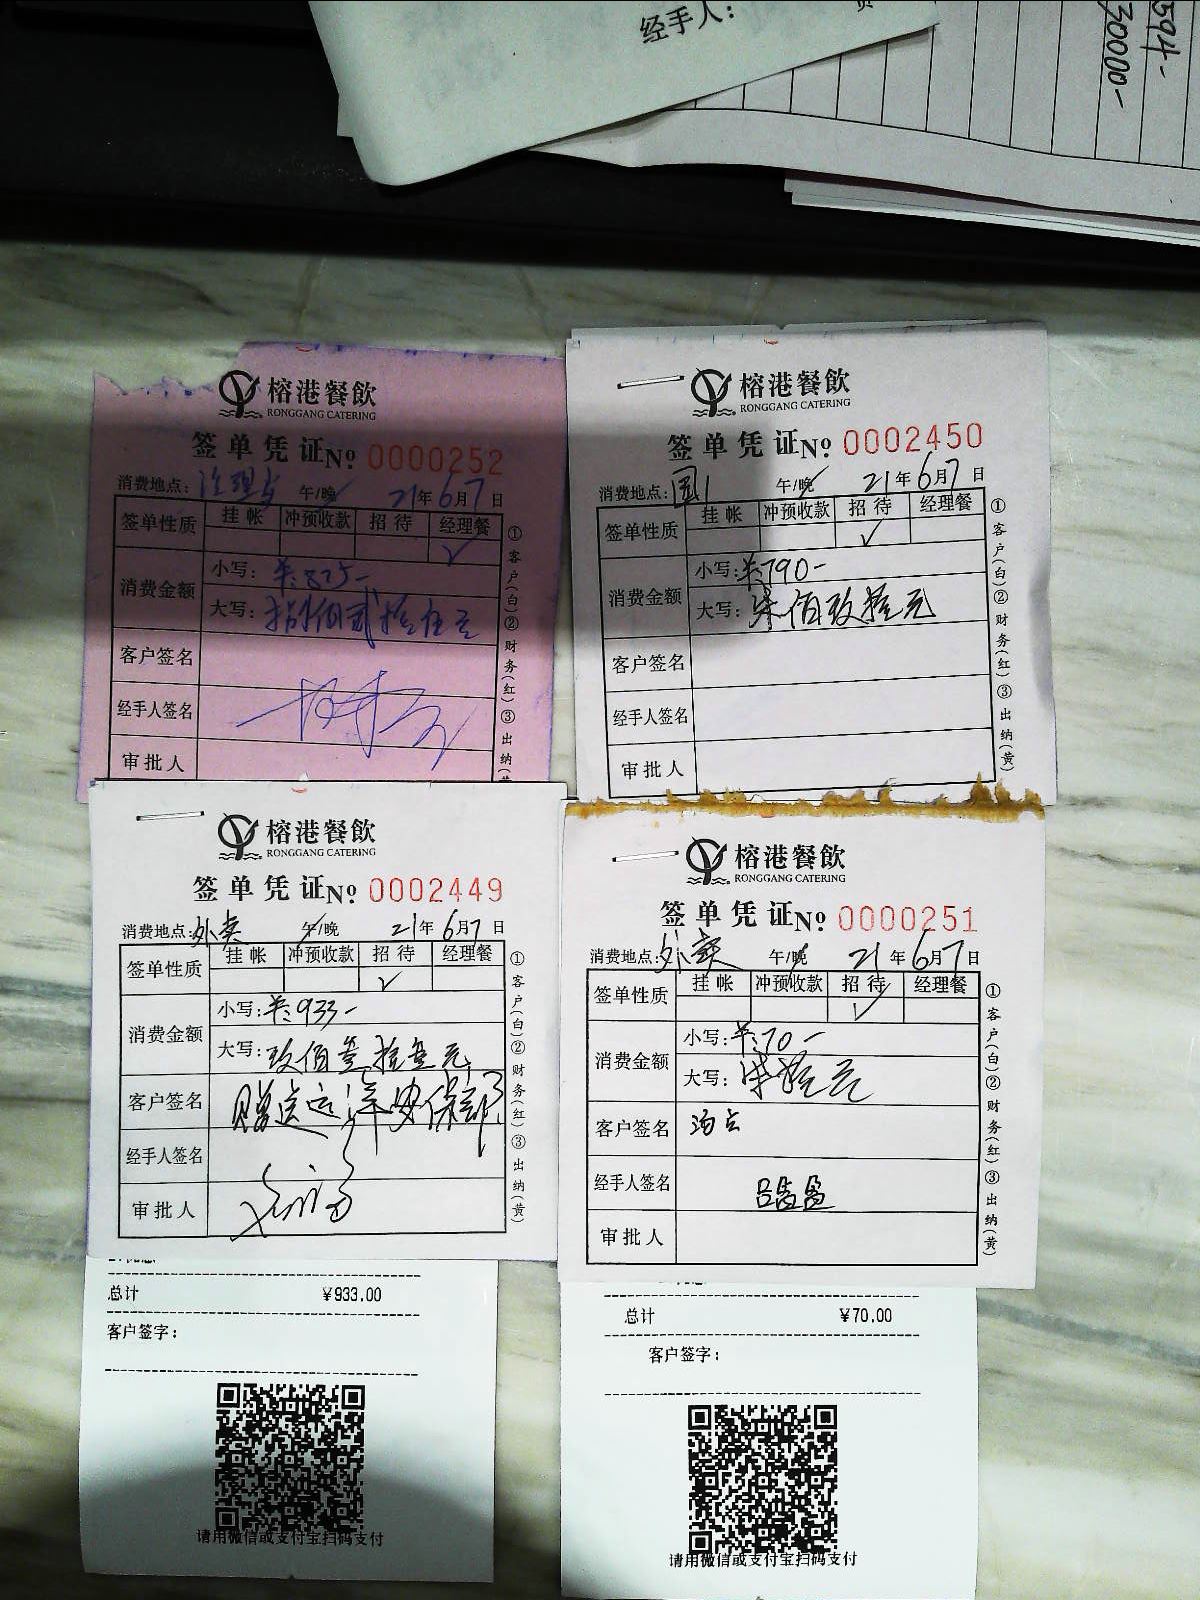 经手人:
594-
30000-
榕港餐飲
RONGGANG CATERING
签单凭证No. 0000252
消费地点: 午/晚 21年6月7日
签单性质 挂帐 冲预收款 招待 经理餐
✓
消费金额 小写: 羊:825-
大写: 捌佰贰拾伍元
客户签名
经手人签名
审批人
①客户(白)②财务(红)③出纳(黄)
榕港餐飲
RONGGANG CATERING
签单凭证No. 0002450
消费地点: 午/晚 21年6月7日
签单性质 挂帐 冲预收款 招待 经理餐
✓
消费金额 小写: 羊:790-
大写: 柒佰玖拾元
客户签名
经手人签名
审批人
①客户(白)②财务(红)③出纳(黄)
榕港餐飲
RONGGANG CATERING
签单凭证No. 0002449
消费地点: 外卖 午/晚 21年6月7日
签单性质 挂帐 冲预收款 招待 经理餐
✓
消费金额 小写: 羊:933-
大写: 玖佰叁拾叁元
客户签名 赠送远洋安保部
经手人签名
审批人
①客户(白)②财务(红)③出纳(黄)
总计 ¥933.00
客户签字:
请用微信或支付宝扫码支付
榕港餐飲
RONGGANG CATERING
签单凭证No. 0000251
消费地点: 外卖 午/晚 21年6月7日
签单性质 挂帐 冲预收款 招待 经理餐
✓
消费金额 小写: 羊:70-
大写: 柒拾元
客户签名 汤点
经手人签名
审批人
①客户(白)②财务(红)③出纳(黄)
总计 ¥70.00
客户签字:
请用微信或支付宝扫码支付